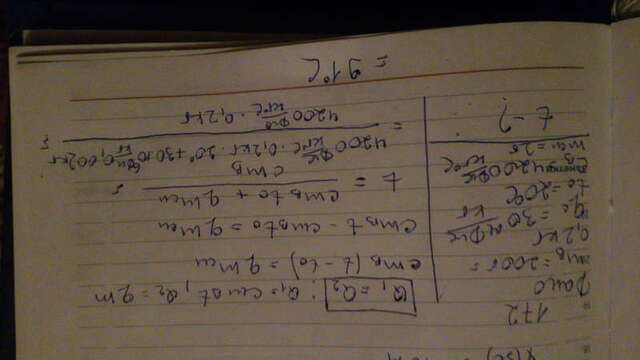 172
Дано
mв = 200 г =
0,2 кг
q = 30 МДж/кг
t₀ = 20°C
4200 Дж/кг°C
t - ?
Q₁ = Q₂ ; Q₁ = cmΔt, Q₂ = qm
cmв (t - t₀) = qmсп
cmвt - cmвt₀ = qmсп
t = (cmвt₀ + qmсп)/(cmв) =
= (4200 Дж/кг°C · 0,2 кг · 20° + 30·10⁶ Дж/кг · 0,002 кг)/(4200 Дж/кг°C · 0,2 кг) =
= 91°C